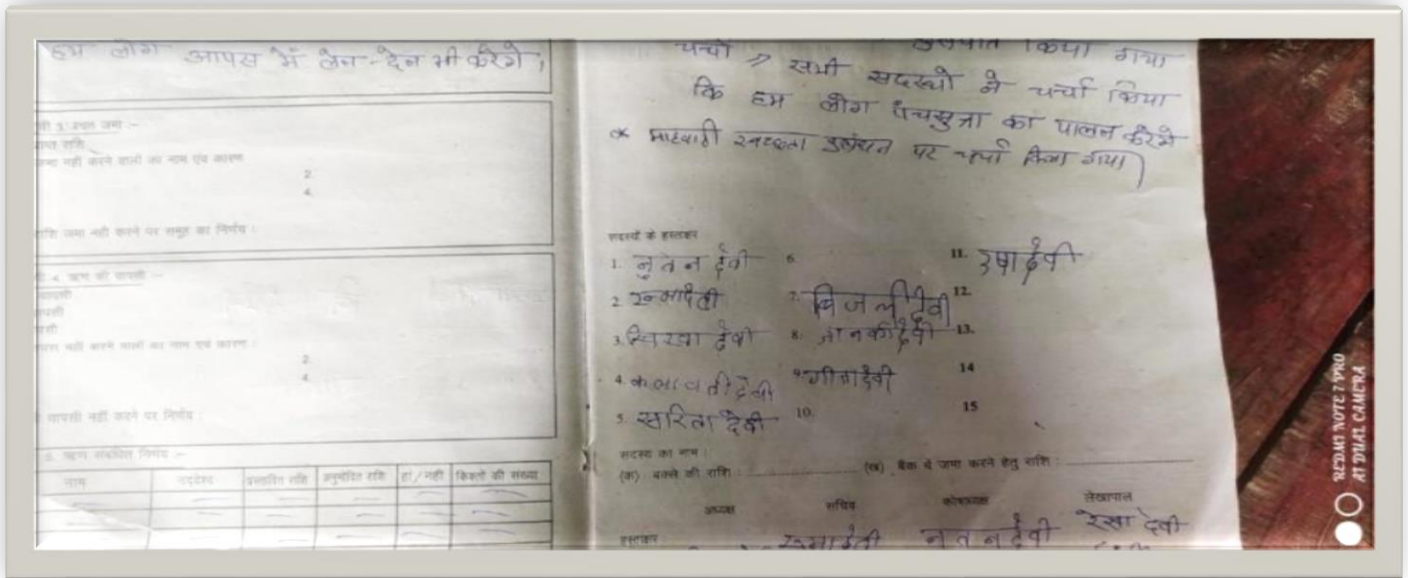 हम लोग आपस में लेन-देन भी करेंगे,
जमा नहीं करने वालों का नाम एवं कारण
2.
4.
राशि जमा नहीं करने पर समूह का निर्णय :
4. ऋण की वापसी :-
वापसी नहीं करने वालों का नाम एवं कारण :
2.
4.
वापसी नहीं करने पर निर्णय :
5. ऋण संबंधित निर्णय :-
नाम उद्देश्य प्रस्तावित राशि अनुमोदित राशि हां/नहीं किश्तों की संख्या
किया गया
चर्चा सभी सदस्यो ने चर्चा किया
कि हम लोग पंचसुत्रा का पालन करेगे
माहवारी स्वच्छता पर चर्चा किया गया
सदस्यों के हस्ताक्षर
1. नुतन देवी 6. 11. उषा देवी
2. 7. बिजली देवी 12.
3. देवी 8. जानकी देवी 13.
4. कलावती देवी 9. गीता देवी 14
5. सरिता देवी 10. 15
सदस्य का नाम :
(क) बक्से की राशि : (ख) बैंक में जमा करने हेतु राशि :
अध्यक्ष सचिव कोषाध्यक्ष लेखापाल
हस्ताक्षर : नुतन देवी रेखा देवी
REDMI NOTE 7 PRO
AI DUAL CAMERA